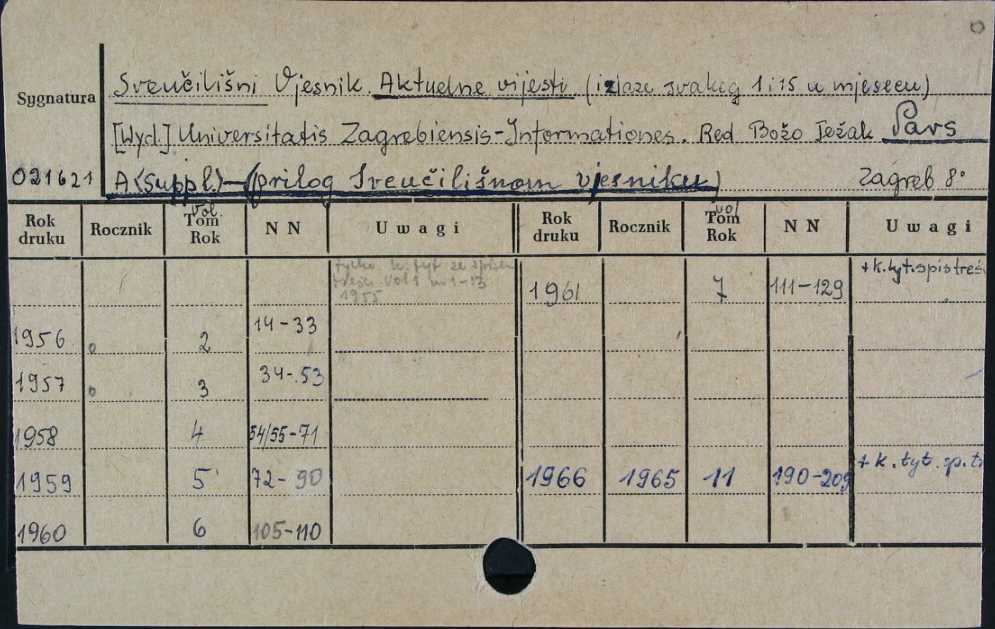 Sveučilišni Vjesnik. Aktuelne vijesti (izlaze svakog 1 i 15 u mjesecu)
Sygnatura
[Wyd.] Universitatis Zagrebiensis-Informationes. Red Božo Težak Pars
021621 A (Suppl.) — (prilog Sveučilišnom vjesniku) Zagreb 8°
Rok druku Rocznik Vol Tom Rok NN Uwagi Rok druku Rocznik vol Tom Rok NN Uwagi
tylko k. tyt ze spisem
treści vol 1 nr 1-13
1955
1961 7 111-129 + k.tyt.spis treści
1956 2 14-33
1957 3 34-53
1958 4 54/55-71
1959 5 72-90 1966 1965 11 190-209 + k.tyt.sp.tr
1960 6 105-110